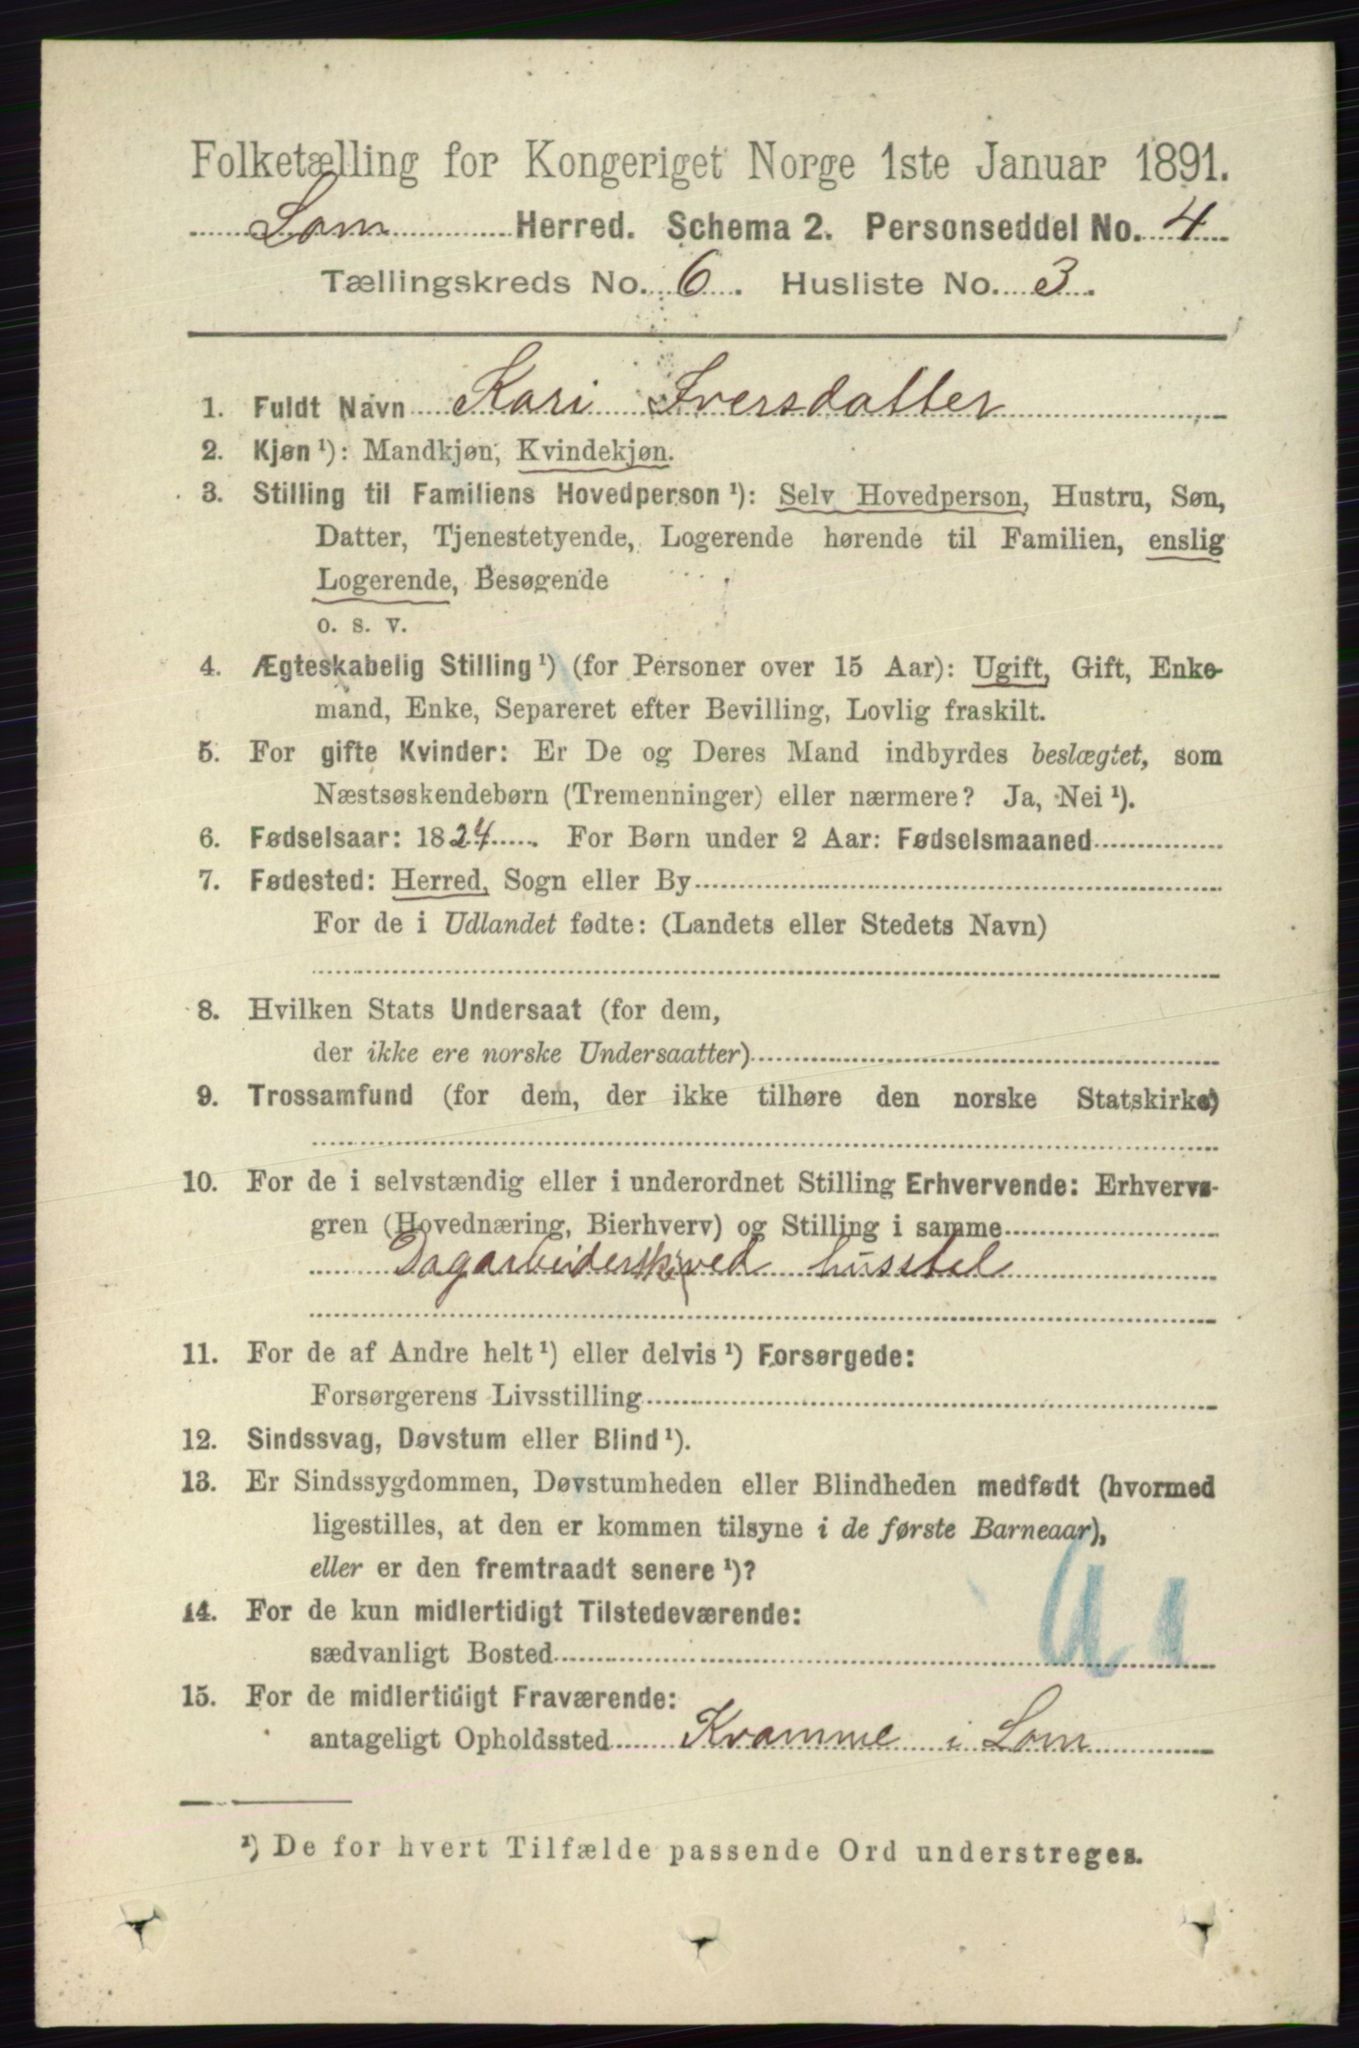 Folketælling for Kongeriget Norge 1ste Januar 1891.
Lom Herred. Schema 2. Personseddel No. 4
Tællingskreds No. 6. Husliste No. 3.
1. Fuldt Navn Kari Iversdatter
2. Kjøn ¹): Mandkjøn, Kvindekjøn.
3. Stilling til Familiens Hovedperson ¹): Selv Hovedperson, Hustru, Søn,
Datter, Tjenestetyende, Logerende hørende til Familien, enslig
Logerende, Besøgende
o. s. v.
4. Ægteskabelig Stilling ¹) (for Personer over 15 Aar): Ugift, Gift, Enke-
mand, Enke, Separeret efter Bevilling, Lovlig fraskilt.
5. For gifte Kvinder: Er De og Deres Mand indbyrdes beslægtet, som
Næstsøskendebørn (Tremenninger) eller nærmere? Ja, Nei ¹).
6. Fødselsaar: 1824. For Børn under 2 Aar: Fødselsmaaned
7. Fødested: Herred, Sogn eller By
For de i Udlandet fødte: (Landets eller Stedets Navn)
8. Hvilken Stats Undersaat (for dem,
der ikke ere norske Undersaatter)
9. Trossamfund (for dem, der ikke tilhøre den norske Statskirke)
10. For de i selvstændig eller i underordnet Stilling Erhvervende: Erhvervs-
gren (Hovednæring, Bierhverv) og Stilling i samme
Dagarbeiderske ved husstel
11. For de af Andre helt ¹) eller delvis ¹) Forsørgede:
Forsørgerens Livsstilling
12. Sindssvag, Døvstum eller Blind ¹).
13. Er Sindssygdommen, Døvstumheden eller Blindheden medfødt (hvormed
ligestilles, at den er kommen tilsyne i de første Barneaar),
eller er den fremtraadt senere ¹)?
14. For de kun midlertidigt Tilstedeværende:
sædvanligt Bosted
15. For de midlertidigt Fraværende:
antageligt Opholdssted Kvamme i Lom
¹) De for hvert Tilfælde passende Ord understreges.